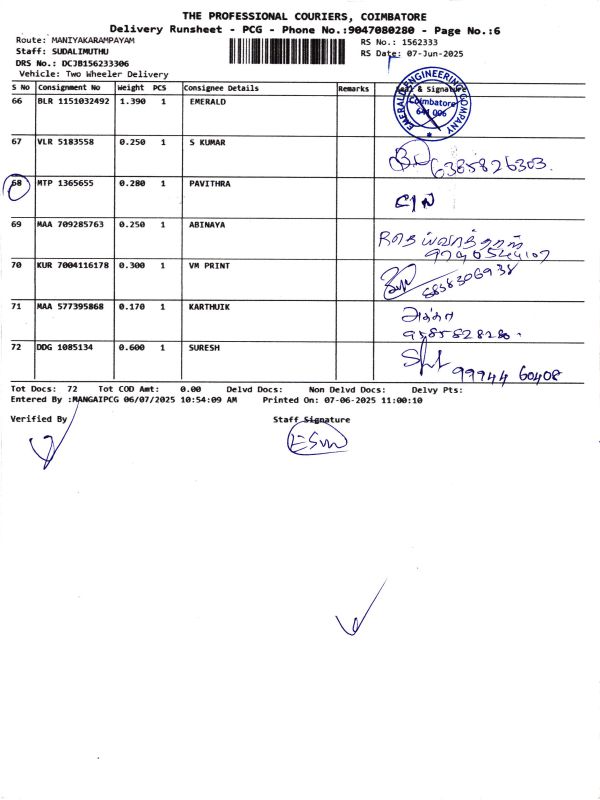 THE PROFESSIONAL COURIERS, COIMBATORE
Delivery Runsheet - PCG - Phone No.:9047080280 - Page No.:6
Route: MANIYAKARAMPAYAM
RS No.: 1562333
Staff: SUDALIMUTHU
RS Date: 07-Jun-2025
DRS No.: DCJB156233306
Vehicle: Two Wheeler Delivery
S No Consignment No Weight PCS Consignee Details Remarks Seal & Signature
66 BLR 1151032492 1.390 1 EMERALD
EMERALD ENGINEERING COMPANY
Coimbatore
641 006
67 VLR 5183558 0.250 1 S KUMAR
6385826303.
68 MTP 1365655 0.280 1 PAVITHRA
69 MAA 709285763 0.250 1 ABINAYA
70 KUR 7004116178 0.300 1 VM PRINT
71 MAA 577395868 0.170 1 KARTHUIK
72 DDG 1085134 0.600 1 SURESH
99944 60408
Tot Docs: 72 Tot COD Amt: 0.00 Delvd Docs: Non Delvd Docs: Delvy Pts:
Entered By :MANGAIPCG 06/07/2025 10:54:09 AM Printed On: 07-06-2025 11:00:10
Verified By Staff Signature